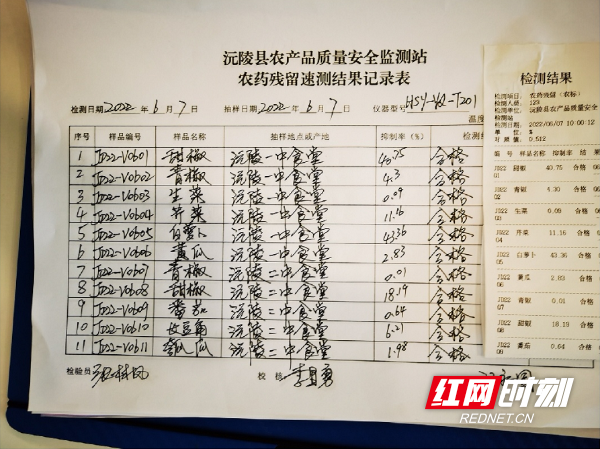 沅陵县农产品质量安全监测站
农药残留速测结果记录表
检测日期2022年6月7日 抽样日期2022年6月7日 仪器型号HSY-
温度
序号 样品编号 样品名称 抽样地点或产地 抑制率(%) 检测结
1 JD22-V0601 甜椒 沅陵一中食堂 40.75 合格
2 JD22-V0602 青椒 沅陵一中食堂 4.3 合格
3 JD22-V0603 生菜 沅陵一中食堂 0.09 合格
4 JD22-V0604 芹菜 沅陵一中食堂 11.16 合格
5 JD22-V0605 白萝卜 沅陵一中食堂 43.36 合格
6 JD22-V0606 黄瓜 沅陵一中食堂 2.83 合格
7 JD22-V0607 青椒 沅陵二中食堂 0.01 合格
8 JD22-V0608 甜椒 沅陵二中食堂 18.19 合格
9 JD22-V0609 番茄 沅陵二中食堂 0.64 合格
10 JD22-V0610 豆角 沅陵二中食堂 6.21 合格
11 JD22-V0611 瓜 沅陵二中食堂 1.98 合格
检验员 校核
检测结果
检测项目: 农药残留(农标)
检测人员: 123
检测单位: 沅陵县农产品质量安全
检测站
检测日期: 2022/06/07 10:00:12
单位: %
对照值: 0.512
编号 样品名称 抑制率 结果
JD22 甜椒 40.75 合格 06
01
JD22 青椒 4.30 合格 06
02
JD22 生菜 0.09 合格 06
03
JD22 芹菜 11.16 合格 06
04
JD22 白萝卜 43.36 合格 06
05
JD22 黄瓜 2.83 合格 06
06
JD22 青椒 0.01 合格 06
07
JD22 甜椒 18.19 合格 06
08
JD22 番茄 0.64 合格 06
红网时刻
REDNET.CN